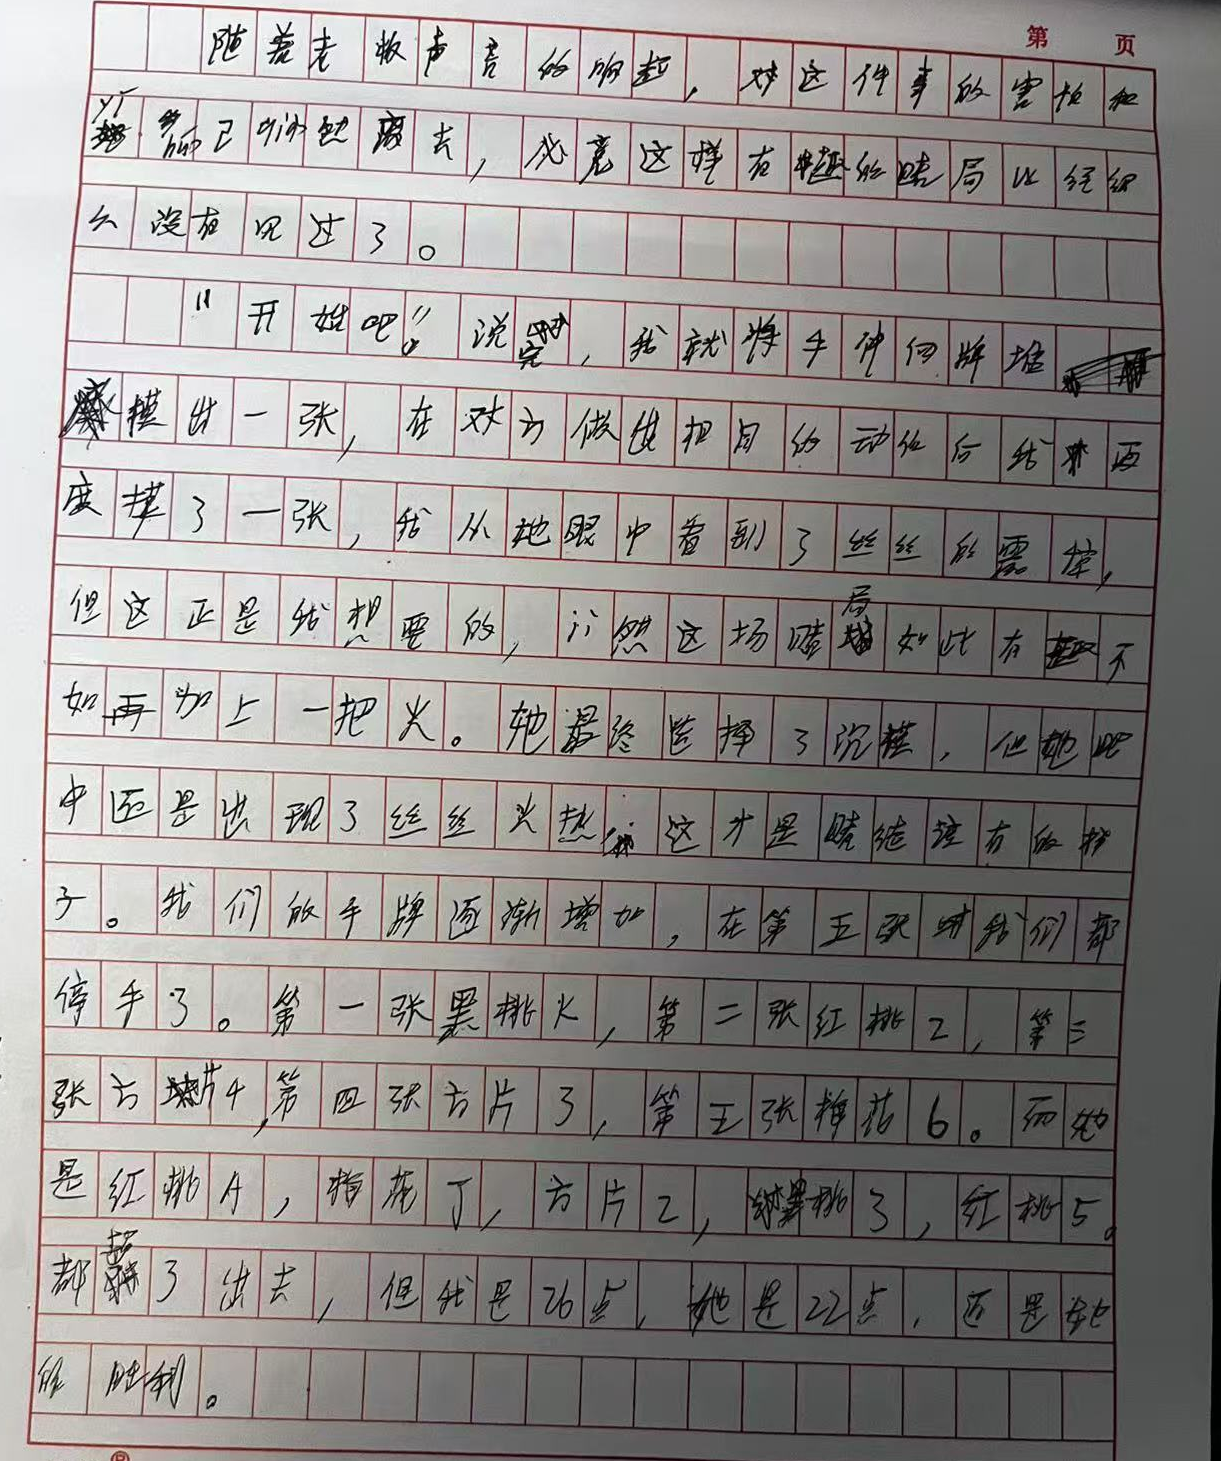 第 页
随着老板声音的响起，对这件事的害怕和
已渐渐褪去，必竟这样有趣的赌局以经很
久没有见过了。
"开始吧！"说完，我就将手伸向牌堆
摸出一张，在对方做出相同的动作后我再
度摸了一张，我从她眼中看到了丝丝的震惊，
但这正是我想要的，让然这场赌局如此有趣不
如再加上一把火。她最终选择了沉模，但她眼
中还是出现了丝丝火热 这才是赌结该有的样
子。我们的手牌逐渐增加，在第五张时我们都
停手了。第一张黑桃K，第二张红桃2，第三
张方片4，第四张方片3，第五张梅花6。而她
是红桃A，梅花J，方片2，黑桃3，红桃5。
都超了出去，但我是26点，她是22点，还是她
的胜利。